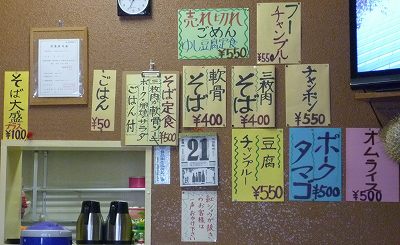 売れ切れ
ごめん
ゆし豆腐定食
¥550
フーチャンプルー
¥550
そば大盛
プラス
¥100
ごはん
¥50
そば定食
ごはん付
軟骨
そば
¥400
三枚肉
そば
¥400
チャンポン
¥550
豆腐
チャンプルー
¥550
ポーク
タマゴ
¥500
オムライス
¥500
21